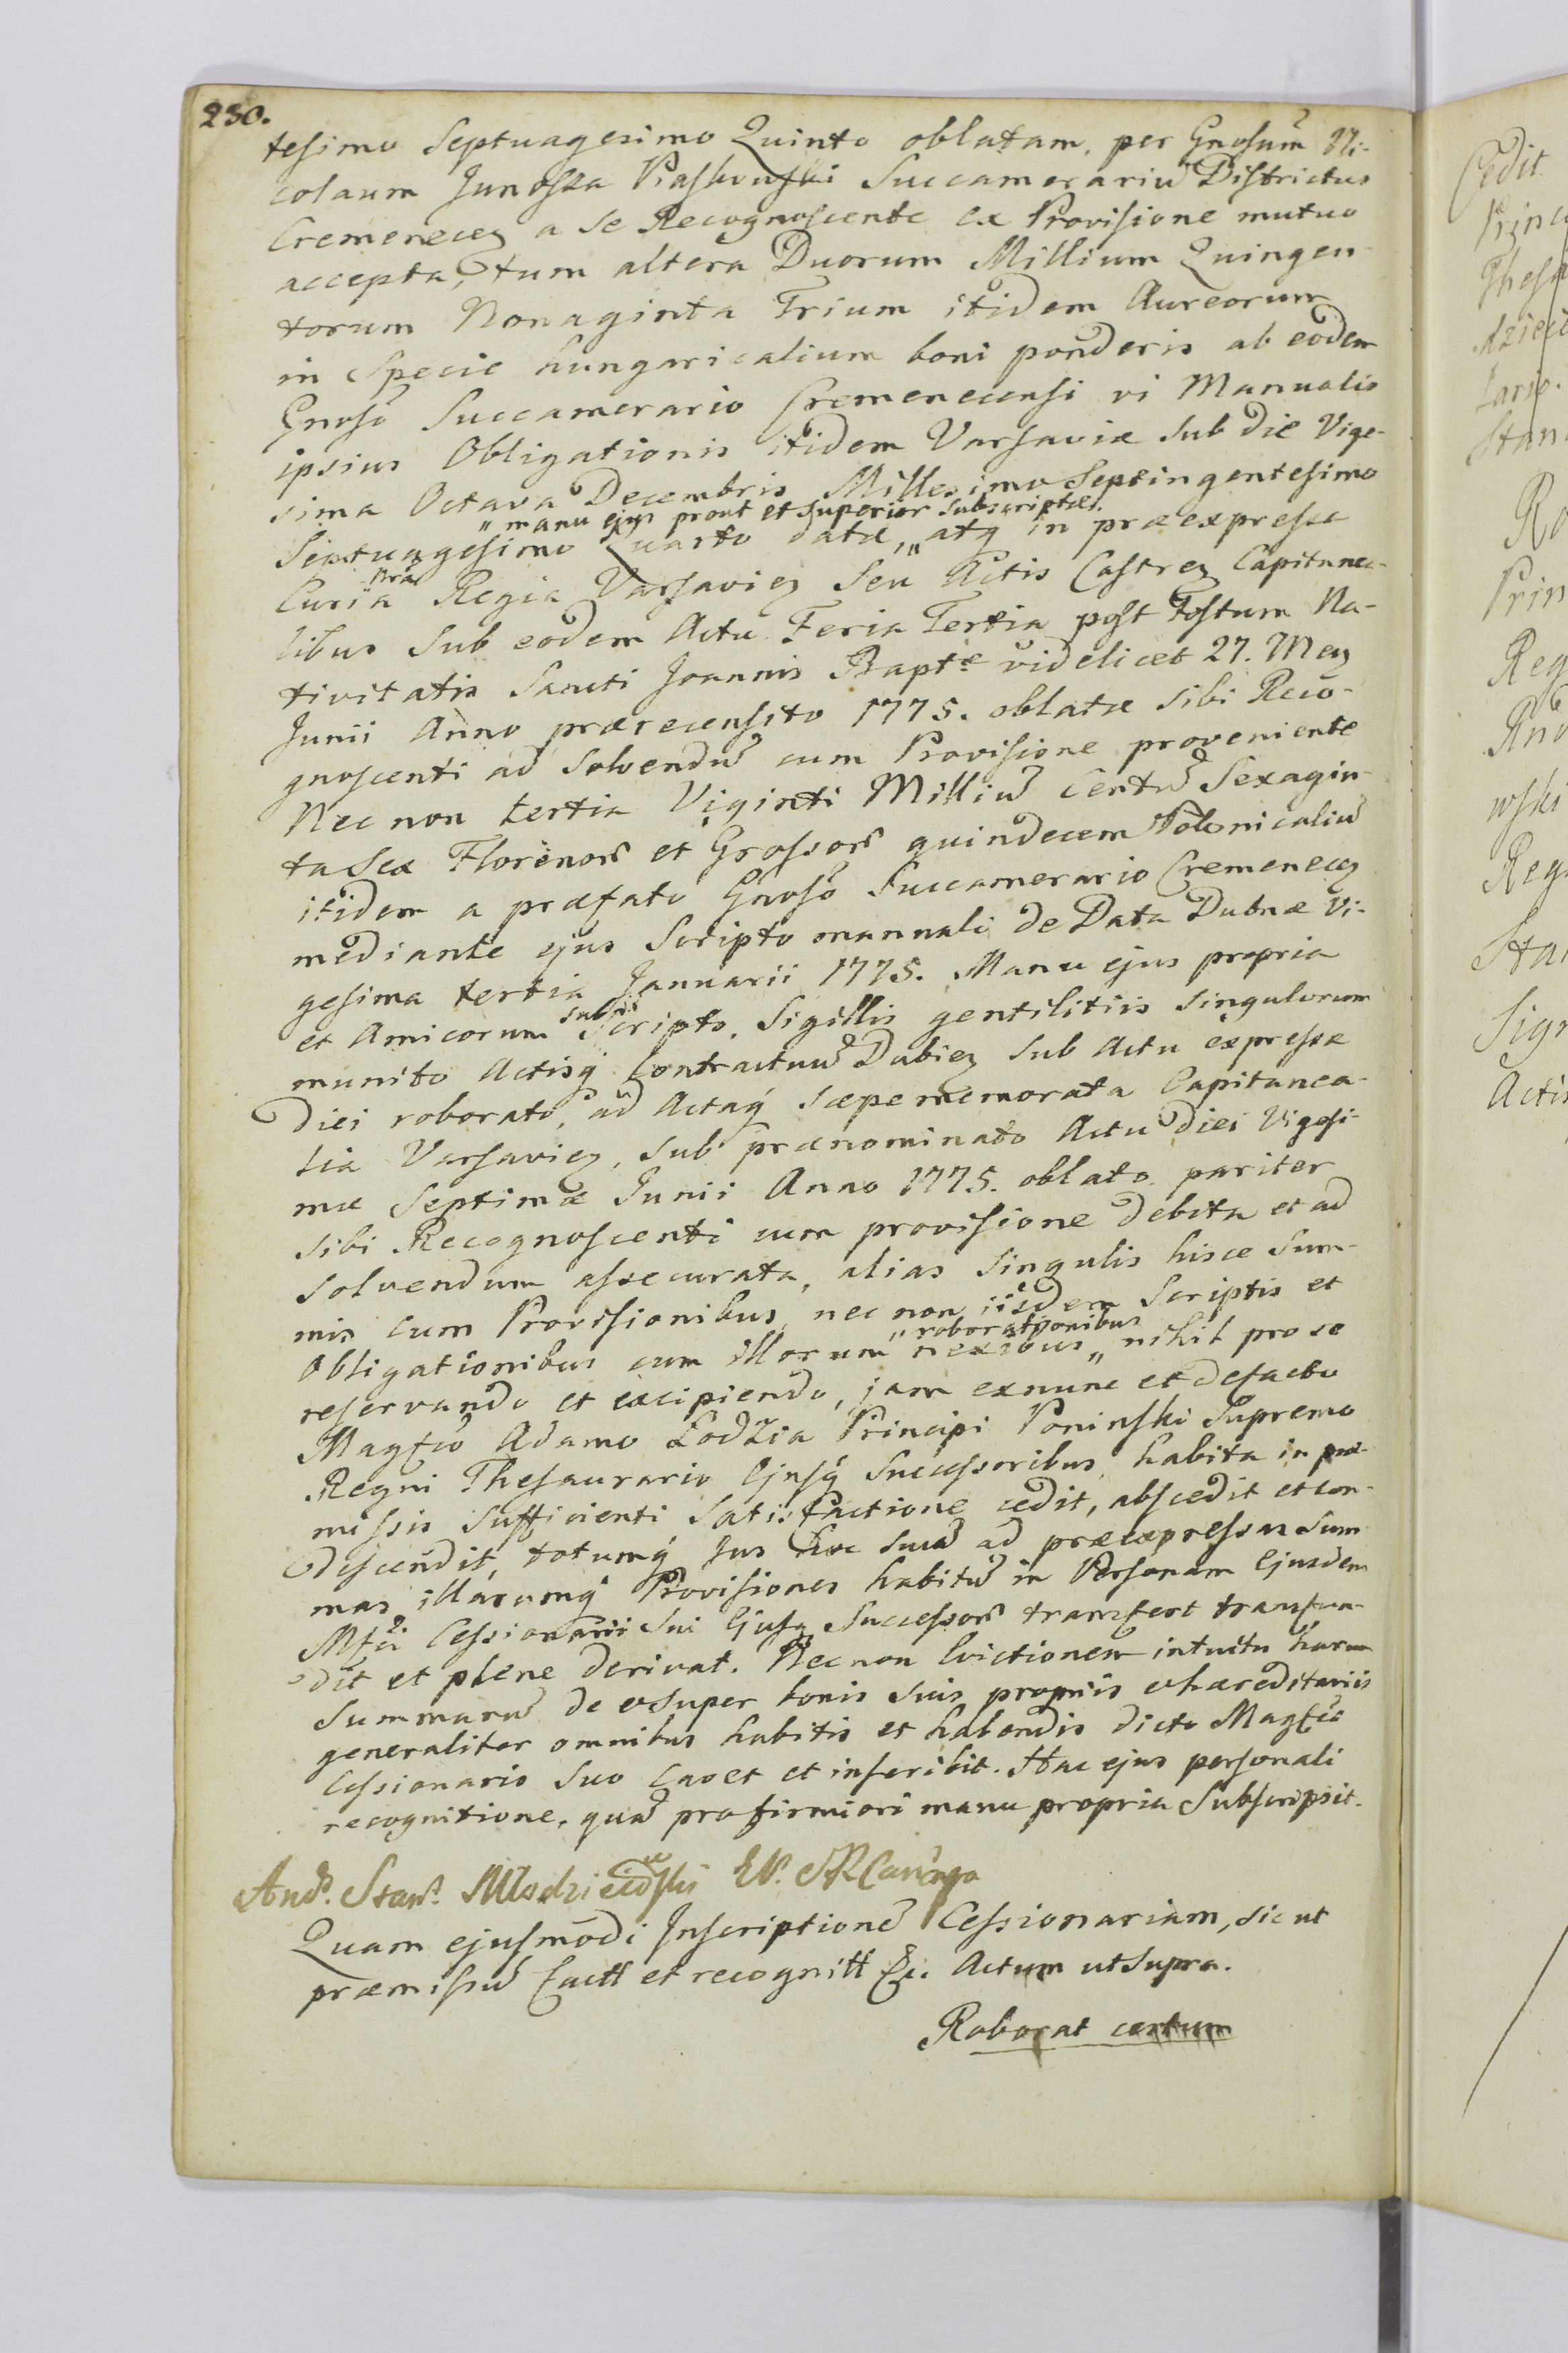 230.
tesimo Septuagesimo Quinto oblatam, per Gnosum Ni-
colaum Junosza Piaskowski Succamerariū Districtus
Cremeneceȝ a se Recognoscente ex Provisione mutuo
accepta, tum altera Duorum Millium Quingen-
torum Nonaginta Trium itidem Aureorum
in Specie hungaricalium boni ponderis ab eodem
Gnoso Succamerario Cremenecensi vi Manualis
ipsius Obligationis itidem Varsaviæ sub die Vige-
sima Octava Decembris Millesimo Septingentesimo
„ manu ejus prout et superior subscriptæ.
Septuagesimo Quarto datæ, „ atq in præexpressa
nra
Curia Regia Varsavieȝ seu Actis Castreȝ Capitanea-
libus sub eodem Actu Feria Tertia post Festum Na-
tivitatis Sancti Joannis Baptæ videlicet 27. Meȝ
Junii Anno prærecensito 1775. oblatæ sibi Reco-
gnoscenti ad solvendū cum Provisione proveniente
Nec non tertia Viginti Milliū Centū Sexagin-
ta Sex Florenor̄ et Grossor̄ quindecem Polonicaliū
itidem a præfato Gnoso Succamerario Cremeneceȝ
mediante ejus Scripto manuali de Data Dubnæ Vi-
gesima tertia Januarii 1775. Manu ejus propria
sub
et Amicorum Scripto, Sigillis gentilitiis singulorum
munito Actisq Contractuū Dubieȝ sub Actu expressæ
diei roborato, ad Actaq sæpememorata Capitanea-
lia Varsavieȝ, sub prænominato Actu diei Vigesi-
mæ Septimæ Junii Anno 1775. oblato pariter
sibi Recognoscenti cum provisione debita et ad
solvendum assecurata, alias singulis hisce Sum-
mis cum Provisionibus, nec non iisdem Scriptis et
„ roborationibus
Obligationibus cum illorum nexibus „ nihil pro se
reservando et excipiendo, jam exnunc et defacto
Magfco Adamo Łodzia Principi Poninski Supremo
Regni Thesaurario Ejusq Successoribus, habita in præ-
missis sufficienti Satisfactione cedit, abscedit et con-
descendit, totumq Jus suū ad præexpressas Sum
mas, illarumq Provisiones habitū in Personam Ejusdem
Mfci Cessionarii sui Ejusq Successor̄ transfert transfun-
dit et plene derivat. Nec non Evictionem intuitu harum
Summarū de et super bonis suis propriis et hæreditariis
generaliter omnibus habitis et habendis dicto Magfco
Cessionario suo cavet et inscribit. Hac ejus personali
recognitione, quā pro firmiori manu propria Subscripsit.
And. Stan. Młodziejowski
Quam ejusmodi Inscriptionē Cessionariam, sic ut
præmissū factt et recognitt &c. Actum ut supra.
Roborat certum